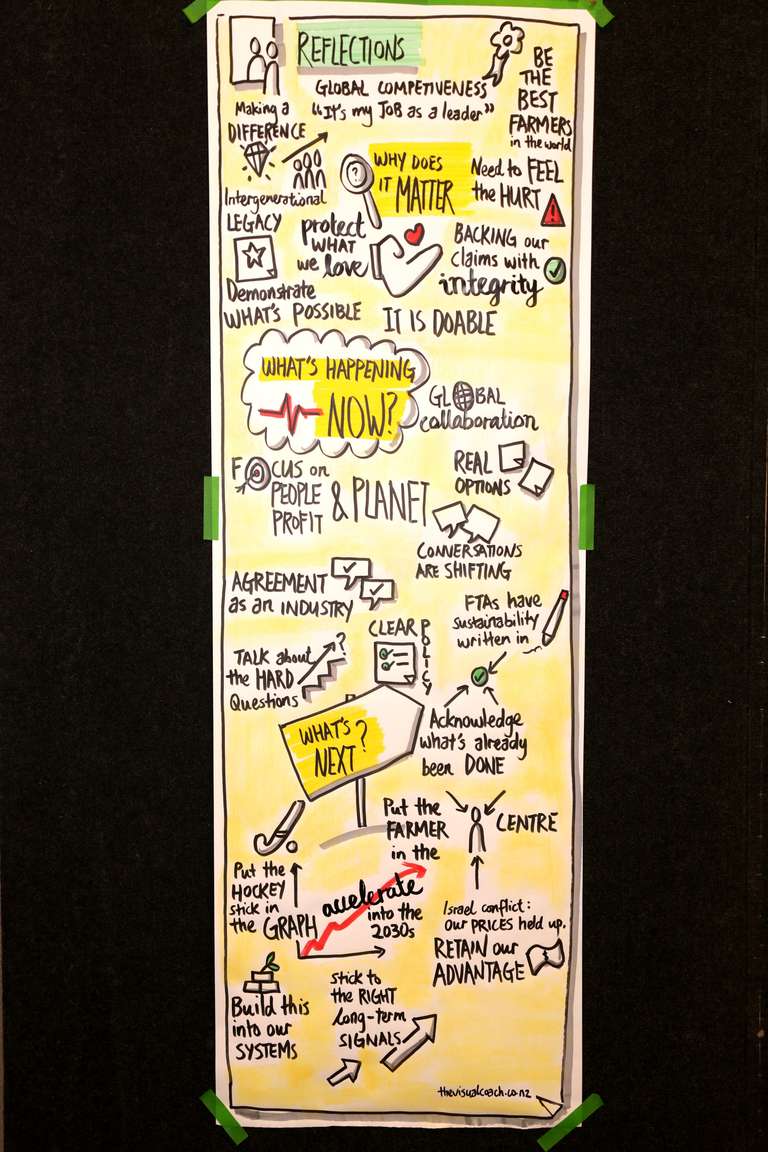 REFLECTIONS
GLOBAL COMPETIVENESS
"It's my JOB as a leader"
BE
THE
BEST
FARMERS
in the world
Making a
DIFFERENCE
Intergenerational
LEGACY
WHY DOES
IT MATTER
?
Need to FEEL
the HURT
!
protect
WHAT
we love
BACKING our
claims with
integrity
Demonstrate
WHAT'S POSSIBLE
IT IS DOABLE
WHAT'S HAPPENING
NOW?
GLOBAL
collaboration
FOCUS on
PEOPLE
PROFIT
& PLANET
REAL
OPTIONS
CONVERSATIONS
ARE SHIFTING
AGREEMENT
as an INDUSTRY
CLEAR
POLICY
FTAs have
sustainability
written in
TALK about
the HARD
Questions
?
WHAT'S
NEXT?
Acknowledge
what's already
been DONE
Put the
FARMER
in the
CENTRE
Put the
HOCKEY
stick in
the GRAPH
accelerate
into the
2030s
Israel conflict:
our PRICES held up.
RETAIN our
ADVANTAGE
Build this
into our
SYSTEMS
Stick to
the RIGHT
long-term
SIGNALS
thevisualcoach.co.nz